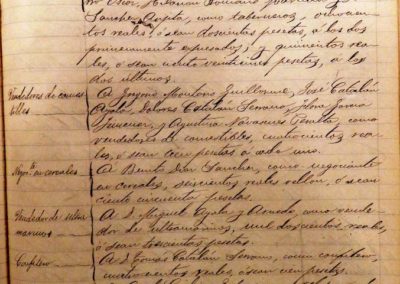 Sanchez Ayala, como taberneros, ochocien-
tos reales, ó sean doscientas pesetas, á los dos
primeramente expresados; y quinientos rea-
les, ó sean ciento veinticinco pesetas, á los
dos últimos.
Vendedores de comes-
tibles
A Gregorio Montons Guillorme, José Catalán
Ayala, Dolores Catalán Serrano,
y Agustina Navascues Peralta, como
vendedores de comestibles, cuatrocientos rea-
les, ó sean cien pesetas á cada uno.
Negte. en cereales
A Benito Diez Sanchez, como negociante
en cereales, seiscientos reales vellon, ó sean
ciento cincuenta pesetas.
Vendedor de ultra-
marinos
A D. Miguel Ayala y Arnedo, como vende-
dor de ultramarinos, mil doscientos reales,
ó sean trescientas pesetas.
Confitero
A D. Tomás Catalán Serrano, como confitero,
cuatrocientos reales, ó sean cien pesetas.